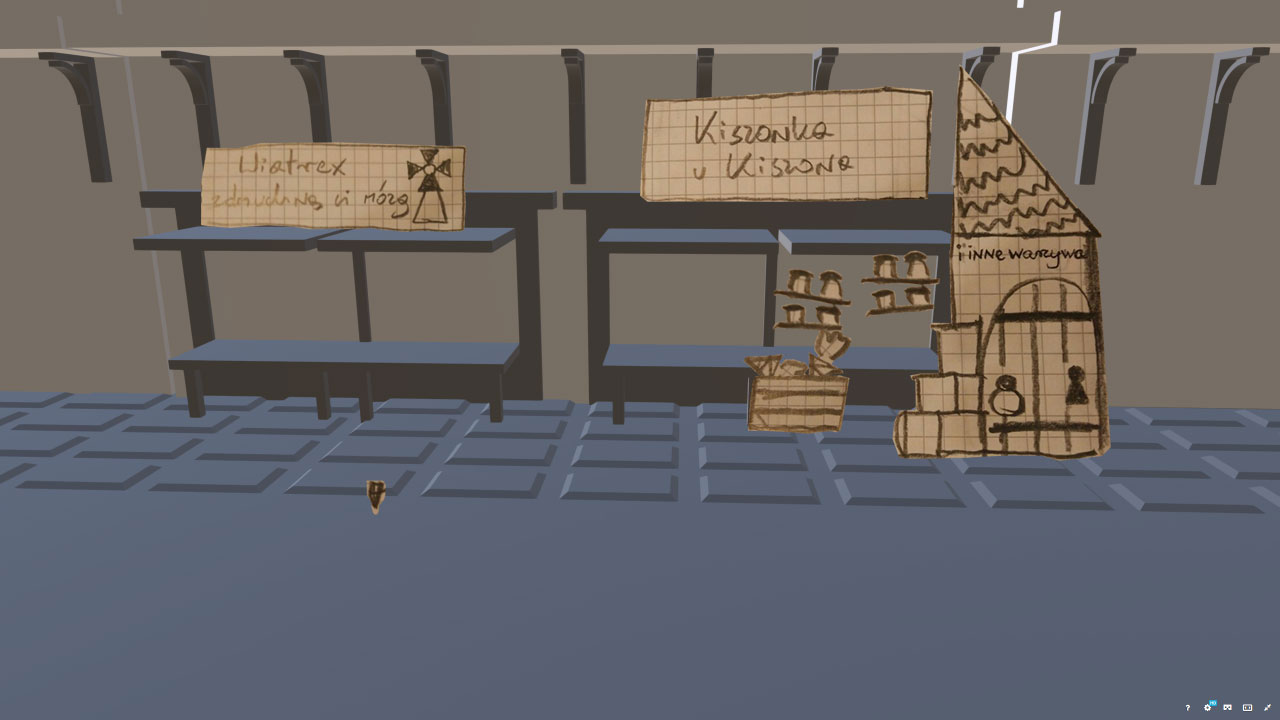 Wiatrex
zdmuchną ci mózg
Kiszonka
u Kiszona
i inne warzywa